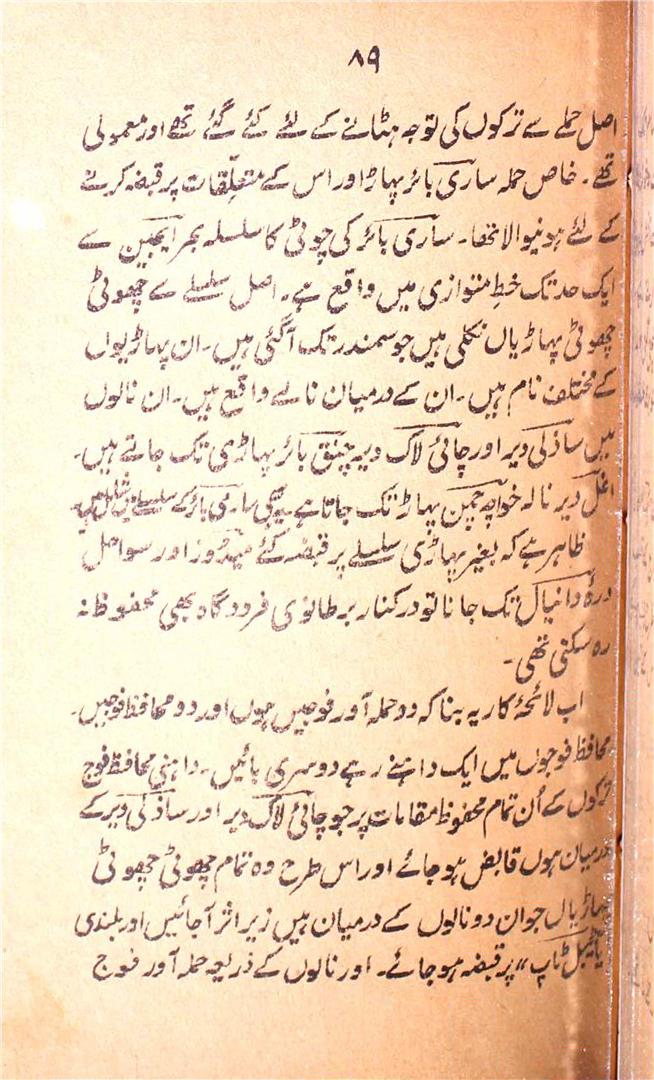 ۸۹
اصل حملے سے ترکوں کی توجہ ہٹانے کے لئے کئے گئے تھے اور معمولی
تھے۔ خاص حملہ ساری بائر پہاڑ اور اس کے متعلّقات پر قبضہ کرنے
کے لئے ہونیوالا تھا۔ ساری بائر کی چوٹی کا سلسلہ بحر ایجین سے
ایک حد تک خطِ متوازی میں واقع ہے۔ اصل سلسلے سے چھوٹی
چھوٹی پہاڑیاں نکلی ہیں جو سمندر تک آگئی ہیں۔ ان پہاڑیوں
کے مختلف نام ہیں۔ ان کے درمیان نالے واقع ہیں۔ ان نالوں
میں ساذلی دیر اور چائی لاک دیرہ چنق بائر پہاڑی تک جاتے ہیں۔
اغل دیر نالہ خواجہ چمن پہاڑ تک جاتا ہے۔ یہ بھی ساری بائر کے سلسلے میں شامل ہے۔
ظاہر ہے کہ بغیر پہاڑی سلسلے پر قبضہ کئے میڈوز اور سواحل
درۂ دانیال تک جانا تو درکنار برطانوی فرودگاہ بھی محفوظ نہ
رہ سکتی تھی۔
اب لائحۂ کار یہ بنا کہ دو حملہ آور فوجیں ہوں اور دو محافظ فوجیں۔
محافظ فوجوں میں ایک داہنے رہے دوسری بائیں۔ داہنی محافظ فوج
ترکوں کے اُن تمام محفوظ مقامات پر جو چائی لاک دیر اور ساذلی دیر کے
درمیان ہوں قابض ہو جائے اور اس طرح وہ تمام چھوٹی چھوٹی
پہاڑیاں جو ان دو نالوں کے درمیان ہیں زیر اثر آجائیں اور بلندی
ٹیبل ٹاپ،، پر قبضہ ہو جائے۔ اور نالوں کے ذریعہ حملہ آور فوج